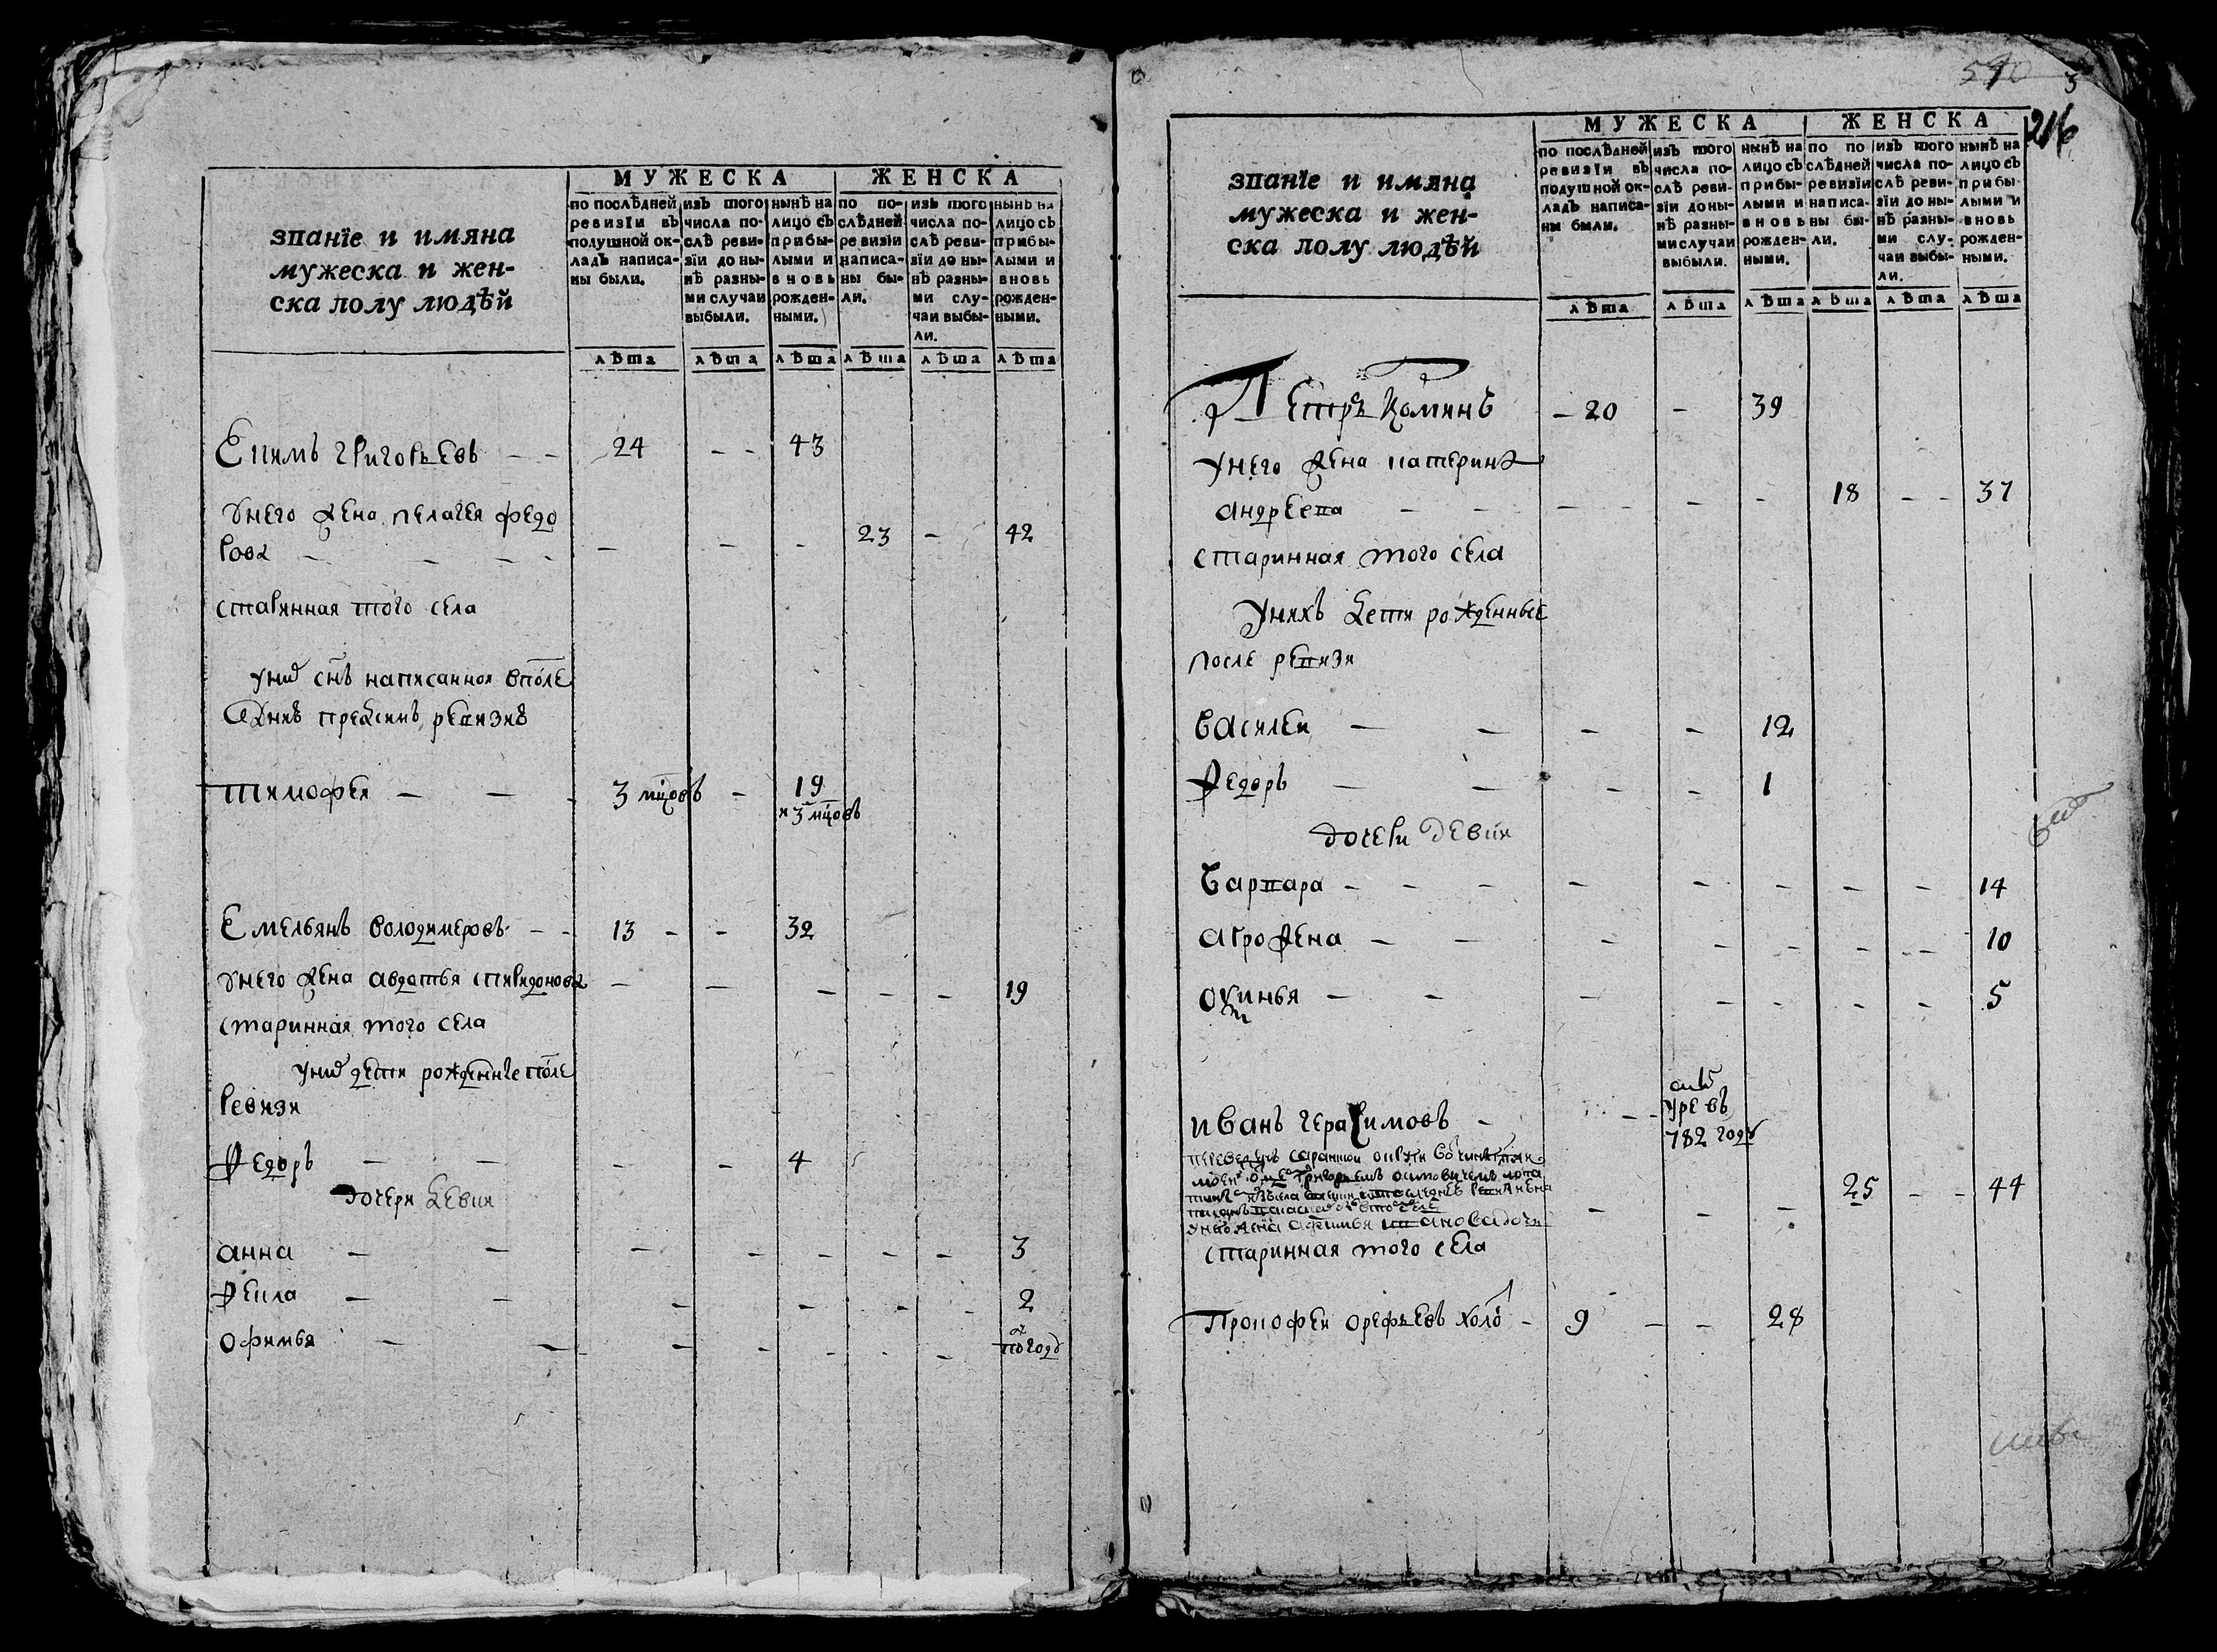 званїе и имяна
мужеска и жен-
ска полу людѣй
МУЖЕСКА
ЖЕНСКА
по послѣдней ревизїи въ подушной ок- ладъ написа- ны были.
изъ того числа по- слѣ реви- зїи до ны- нѣ разны- ми случаи выбыли.
нынѣ на лицо съ прибы- лыми и вновь рожден- ными.
по по- слѣдней ревизїи написа- ны бы- ли.
изъ того числа по- слѣ реви- зїи до ны- нѣ разны- ми слу- чаи выбы- ли.
нынѣ на лицо съ прибы- лыми и вновь рожден- ными.
лѣта лѣта лѣта лѣта лѣта лѣта
Екимъ григорьевъ - - 24 - - 43
Унего жена пелагея федо
рова - - - - - - - 23 - 42
старинная того села
уних снъ написанной впосле
днею пред сим ревизию
тимофеи - - - 3 мцовъ - 19
и 3 мцовъ
Емельянъ володимеровъ - - 13 - - 32
Унего жена авдотья спиридонова - - - - - 19
старинная того села
уних дети рожденные после
ревизи
Федоръ - - - - 4
дочери девки
анна - - - - - - - 3
Фекла - - - - - - 2
офимья - - - - - - - полгода
590
3
216
званїе и имяна
мужеска и жен-
ска полу людѣй
МУЖЕСКА
ЖЕНСКА
по послѣдней ревизїи въ подушной ок- ладъ написа- ны были.
изъ того числа по- слѣ реви- зїи до ны- нѣ разны- ми случаи выбыли.
нынѣ на лицо съ прибы- лыми и вновь рожден- ными.
по по- слѣдней ревизїи написа- ны бы- ли.
изъ того числа по- слѣ реви- зїи до ны- нѣ разны- ми слу- чаи выбы- ли.
нынѣ на лицо съ прибы- лыми и вновь рожден- ными.
лѣта лѣта лѣта лѣта лѣта лѣта
Петръ Коминъ - 20 - 39
Унего жена катерина
андреева - - - - - - 18 - - 37
старинная того села
Унихъ дети рожденные
после ревизи
василеи - - - - 12
Федоръ - - - - 1
дочери девки
варвара - - - - - - - - 14
агрофена - - - - - - - 10
окинья - - - - - - - 5
иванъ герасимовъ - - -
умре въ
782 году
25 - - 44
старинная того села
Прокофеи орефьевъ холо - 9 - - 28